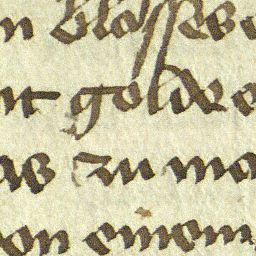 n blosses
nt golde
as zu ma
von einem